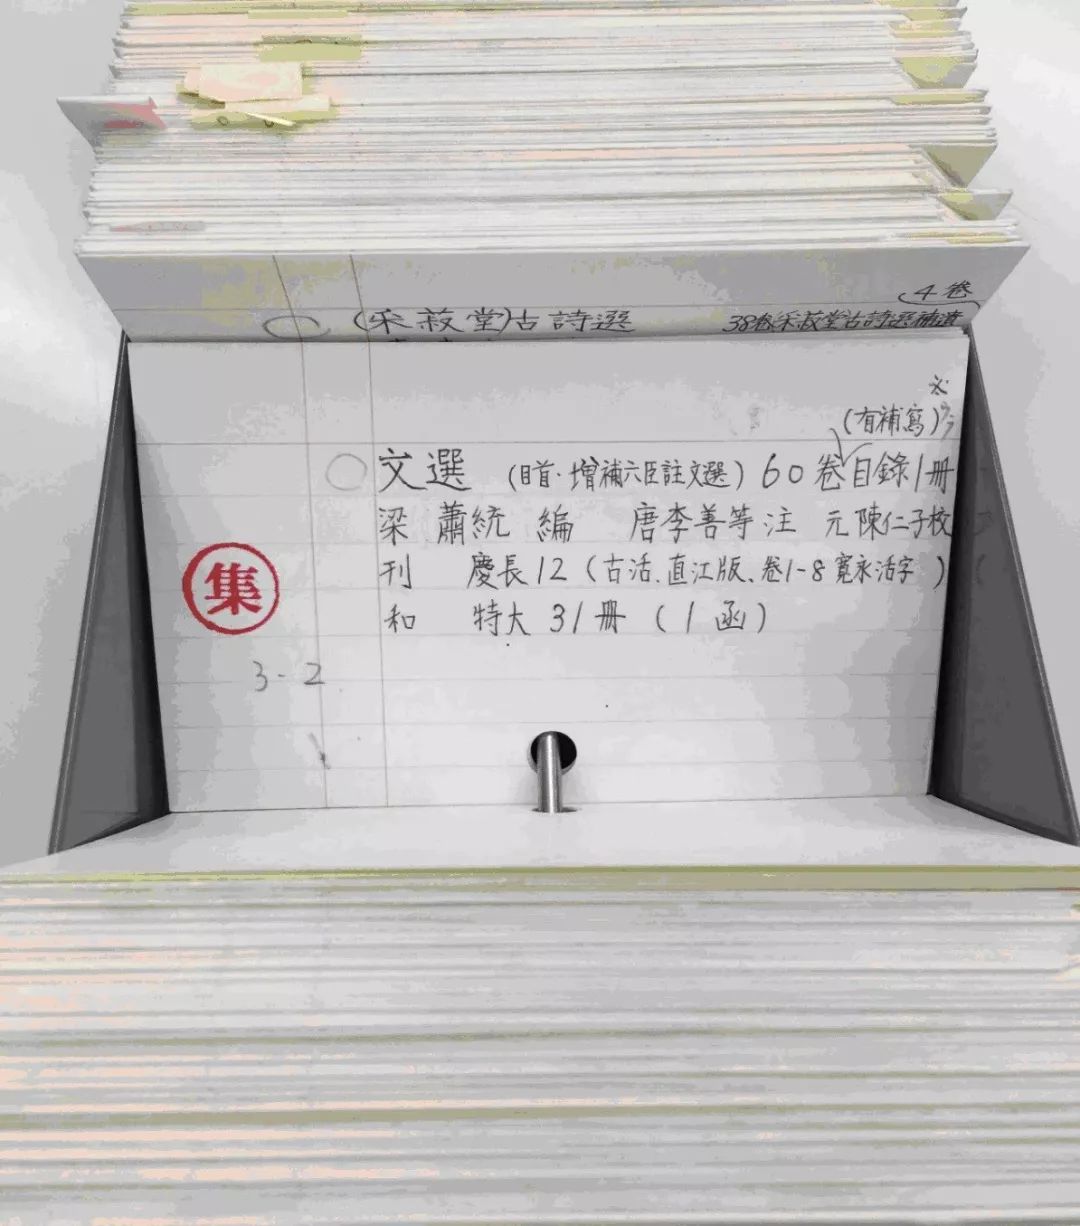 4卷
(采菽堂)古詩選 38卷采菽堂古詩選補遺
(有補寫)
文選 (目首·增補六臣註文選) 60卷目錄1冊
梁 蕭統 編 唐李善等注 元陳仁子校
刊 慶長12 (古活、直江版、卷1-8寬永活字)
和 特大 31冊 (1函)
集
3-2